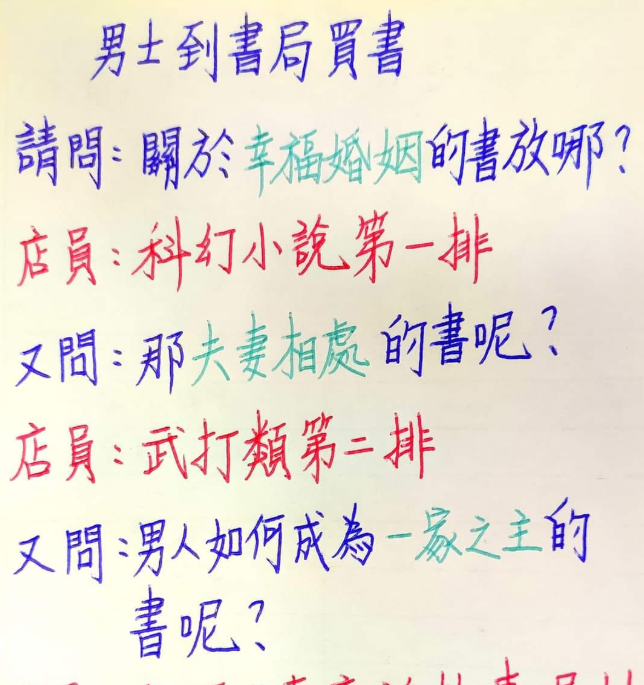 男士到書局買書
請問：關於幸福婚姻的書放哪？
店員：科幻小說第一排
又問：那夫妻相處的書呢？
店員：武打類第二排
又問：男人如何成為一家之主的
書呢？